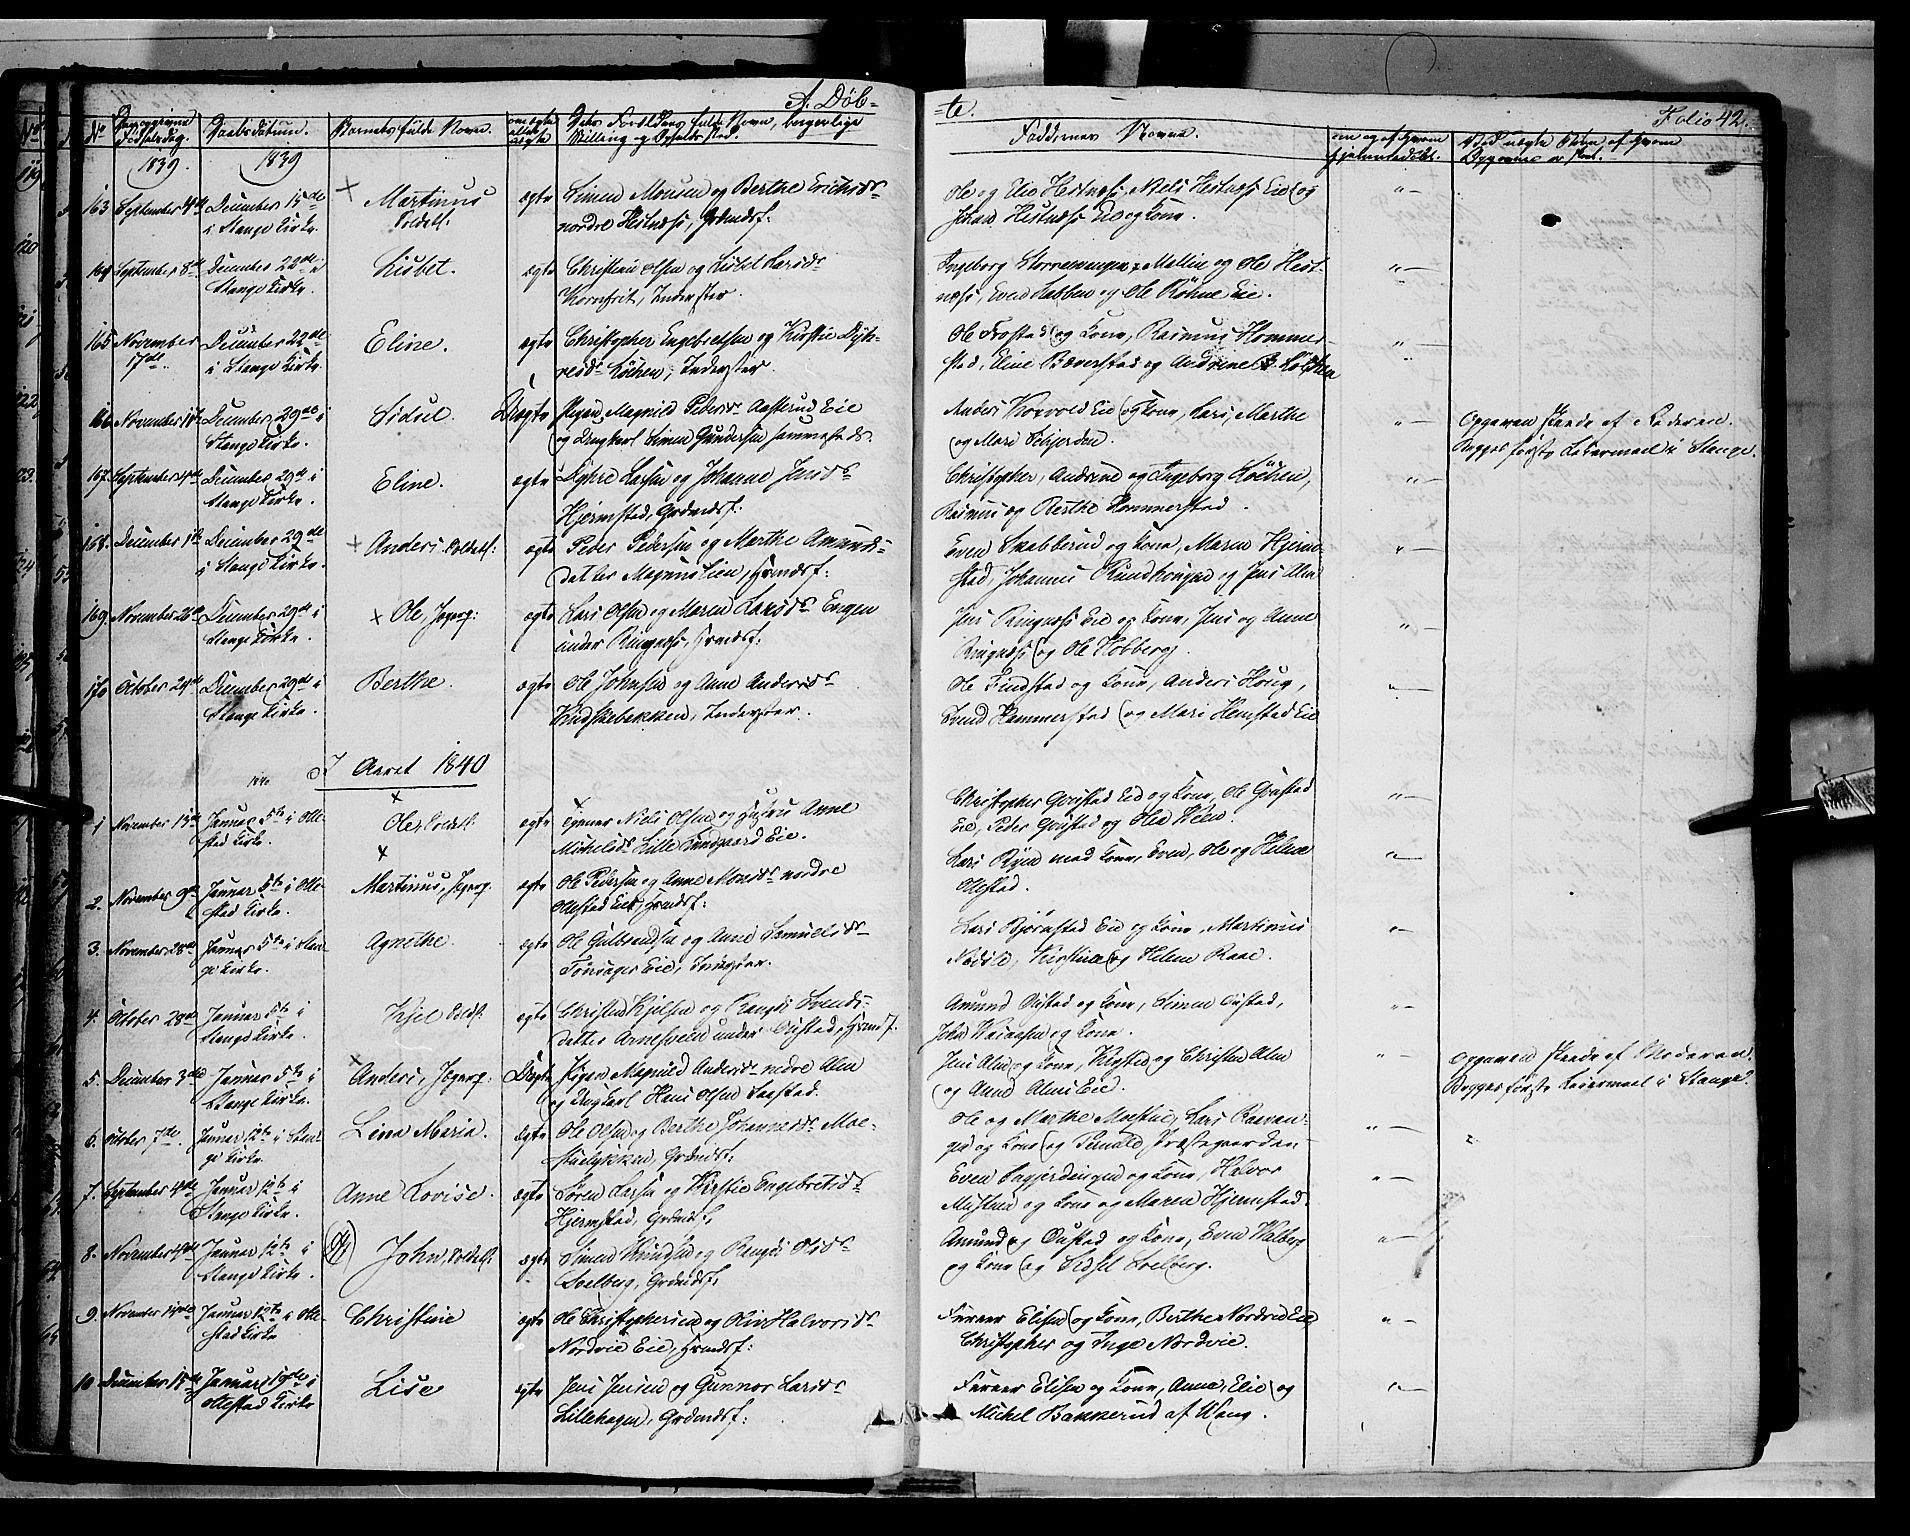 A. Döb-
-te.
Folio 42.
No
Barnets fulde Navn.
Faddernes Navne.
1839
1839
163 September 4de December 15de i Stange Kirke. Martinus Poldetf. ægte Simen Monsen og Berthe Erichsdr nordre Hestnæss, Grdmdsf.
Ole og Elie Hestnæss, Niels Hestnæss Eie og
Johan Hestnæss Eie og Kone.
164 September 8de December 22de i Stange Kirke. Lisbet. ægte Christian Olsen og Lisbet Larsdr
Kornfrit, Inderster.
Ingeborg, Malline og Ole Hest-
næss, Even Labben og Ole Röhne Eie.
165 November 17de December 22de i Stange Kirke. Eline. ægte Christopher Engebretsen og Kirstie Dyh-
redr Löchen, Inderster.
Ole Frostad og Kone, Rasmus Hommer-
stad, Eline Bæverstad og Andrine Löchen
166 November December 29de i Stange Kirke. Sidsel. Uægte Pigen Magnild Pedersdr Aasterud Eie
og Ungkarl Simen Gundersen sammesteds.
Anders Korvold Eie og Kone, Lars, Marthe
og Mari
Opgaven skeede af Faderen.
Begges første Leiermaal i Stange.
167. September 4de December 29de i Stange Kirke. Eline. ægte Dyhre Larsen og Johanne Jensdr
Hjermstad, Grdmdsf:
Christopher, Andrine og Ingeborg Löchen,
Rasmus og Berthe Hommerstad.
168. December 1ste December 29de i Stange Kirke. Anders Poldetf: ægte Peder Pedersen og Marthe Amunds-
datter Magnuslien, Hrmdsf:
Even Skabberud og Kone, Maren Hjerm-
stad, Johannes Rundhougen og Jens Alm
169. November 26de December 29de i Stange Kirke. Ole, Jegerg: ægte Lars Olsen og Maren Larsdr Engen
under Ringnæss, Hrmdsf:
Jens Ringnæss Eie og Kone, Jens og Anne
Ringnæss og Ole Hobberg.
170 October 24de December 29de i Stange Kirke. Berthe. ægte Ole Johnsen og Anne Andersdr
Kudskebakken, Inderster.
Ole Findstad og Kone, Anders Houg,
Svend Hammerstad og Mari Hemstad Eie
I Aaret 1840
1840
1 November 15de Januar 5te i Otte-
stad Kirke. Ole Poldetf. ægte Tjener Niels Olsen og Hustru Anne
Michelsdr Lille Sundgaard Eie.
Christopher Grustad Eie og Kone, Ole Grustad
Eie, Peder Grustad og Olea Hven.
2. November 9de Januar 5te i Otte-
stad Kirke. Martinus, Jegerg. ægte Ole Pedersen og Anne Monsdr nordre
Ottestad Eie, Hrmdsf:
Lars Ryen med Kone, Even, Ole og Helene
Ottestad.
3. November 28de Januar 5te i Stan-
ge Kirke. Agnethe. ægte Ole Gulbrandsen og Anne Samuelsdr
Tönsager Eie, Inderster.
Lars Bjørnstad Eie og Kone, Martinus
Nödsle, Kirstine og Helene Raae.
4. October 28de Januar 5te i
Stange Kirke. Kjel Poldf. ægte Christen Kjelsen og Rangdi Svends-
datter Arnesveen under Oustad, Hrmdsf.
Amund Oustad og Kone, Simen Oustad,
John og Kone.
5. December 3die Januar 5te i
Stange Kirke. Anders, Jegerg: Uægte Pigen Magnild Andersdr nedre Alm
og Ungkarl Hans Olsen Saastad.
Jens Alm og Kone, Kersted og Christen Alm
og Amund Alms Eie.
Opgaven skeede af Moderen.
Begges første Leiermaal i Stange.
6. October 7de. Januar 12te i Stan-
ge Kirke. Lina Maria. ægte Ole Olsen og Berthe Johannesdr Moe-
stuelykken, Grdmdsf:
Ole og Marthe Moestue, Lars Raavan-
gen og Kone og Pernille Præstegaarden
7. September 4de Januar 12te i
Stange Kirke. Anne Lovise. ægte Søren Larsen og Kirstie Engebretsdr
Hjermstad, Grdmdsf,
Even Sagjerdingen og Kone, Halvor
Mystuen og Kone og Maren Hjermstad.
8. November 4de Januar 12te i
Stange Kirke. John, Poldetf. ægte Simen Knudsen og Rangdi Olsdr
Soelberg, Grdmdsf.
Amund Oustad og Kone, Even Walberg
og Kone og Sidsel Soelberg.
9. November Januar 12te i Otte-
stad Kirke Christine ægte Ole Christophersen og Oliv Halvorsdr
Nordvie Eie, Hrmdsf:
Farver Elisen og Kone, Berthe Nordvie Eie
Christopher og Inge Nordvie.
10 December Januar 19de i
Ottestad Kirke Lise ægte Jens Jensen og Gunnor Larsdr
Lillehagen, Grdmdsf:
Farver Elisen og Kone, Anne, Elie og
Michel Bakkerud af Wang.